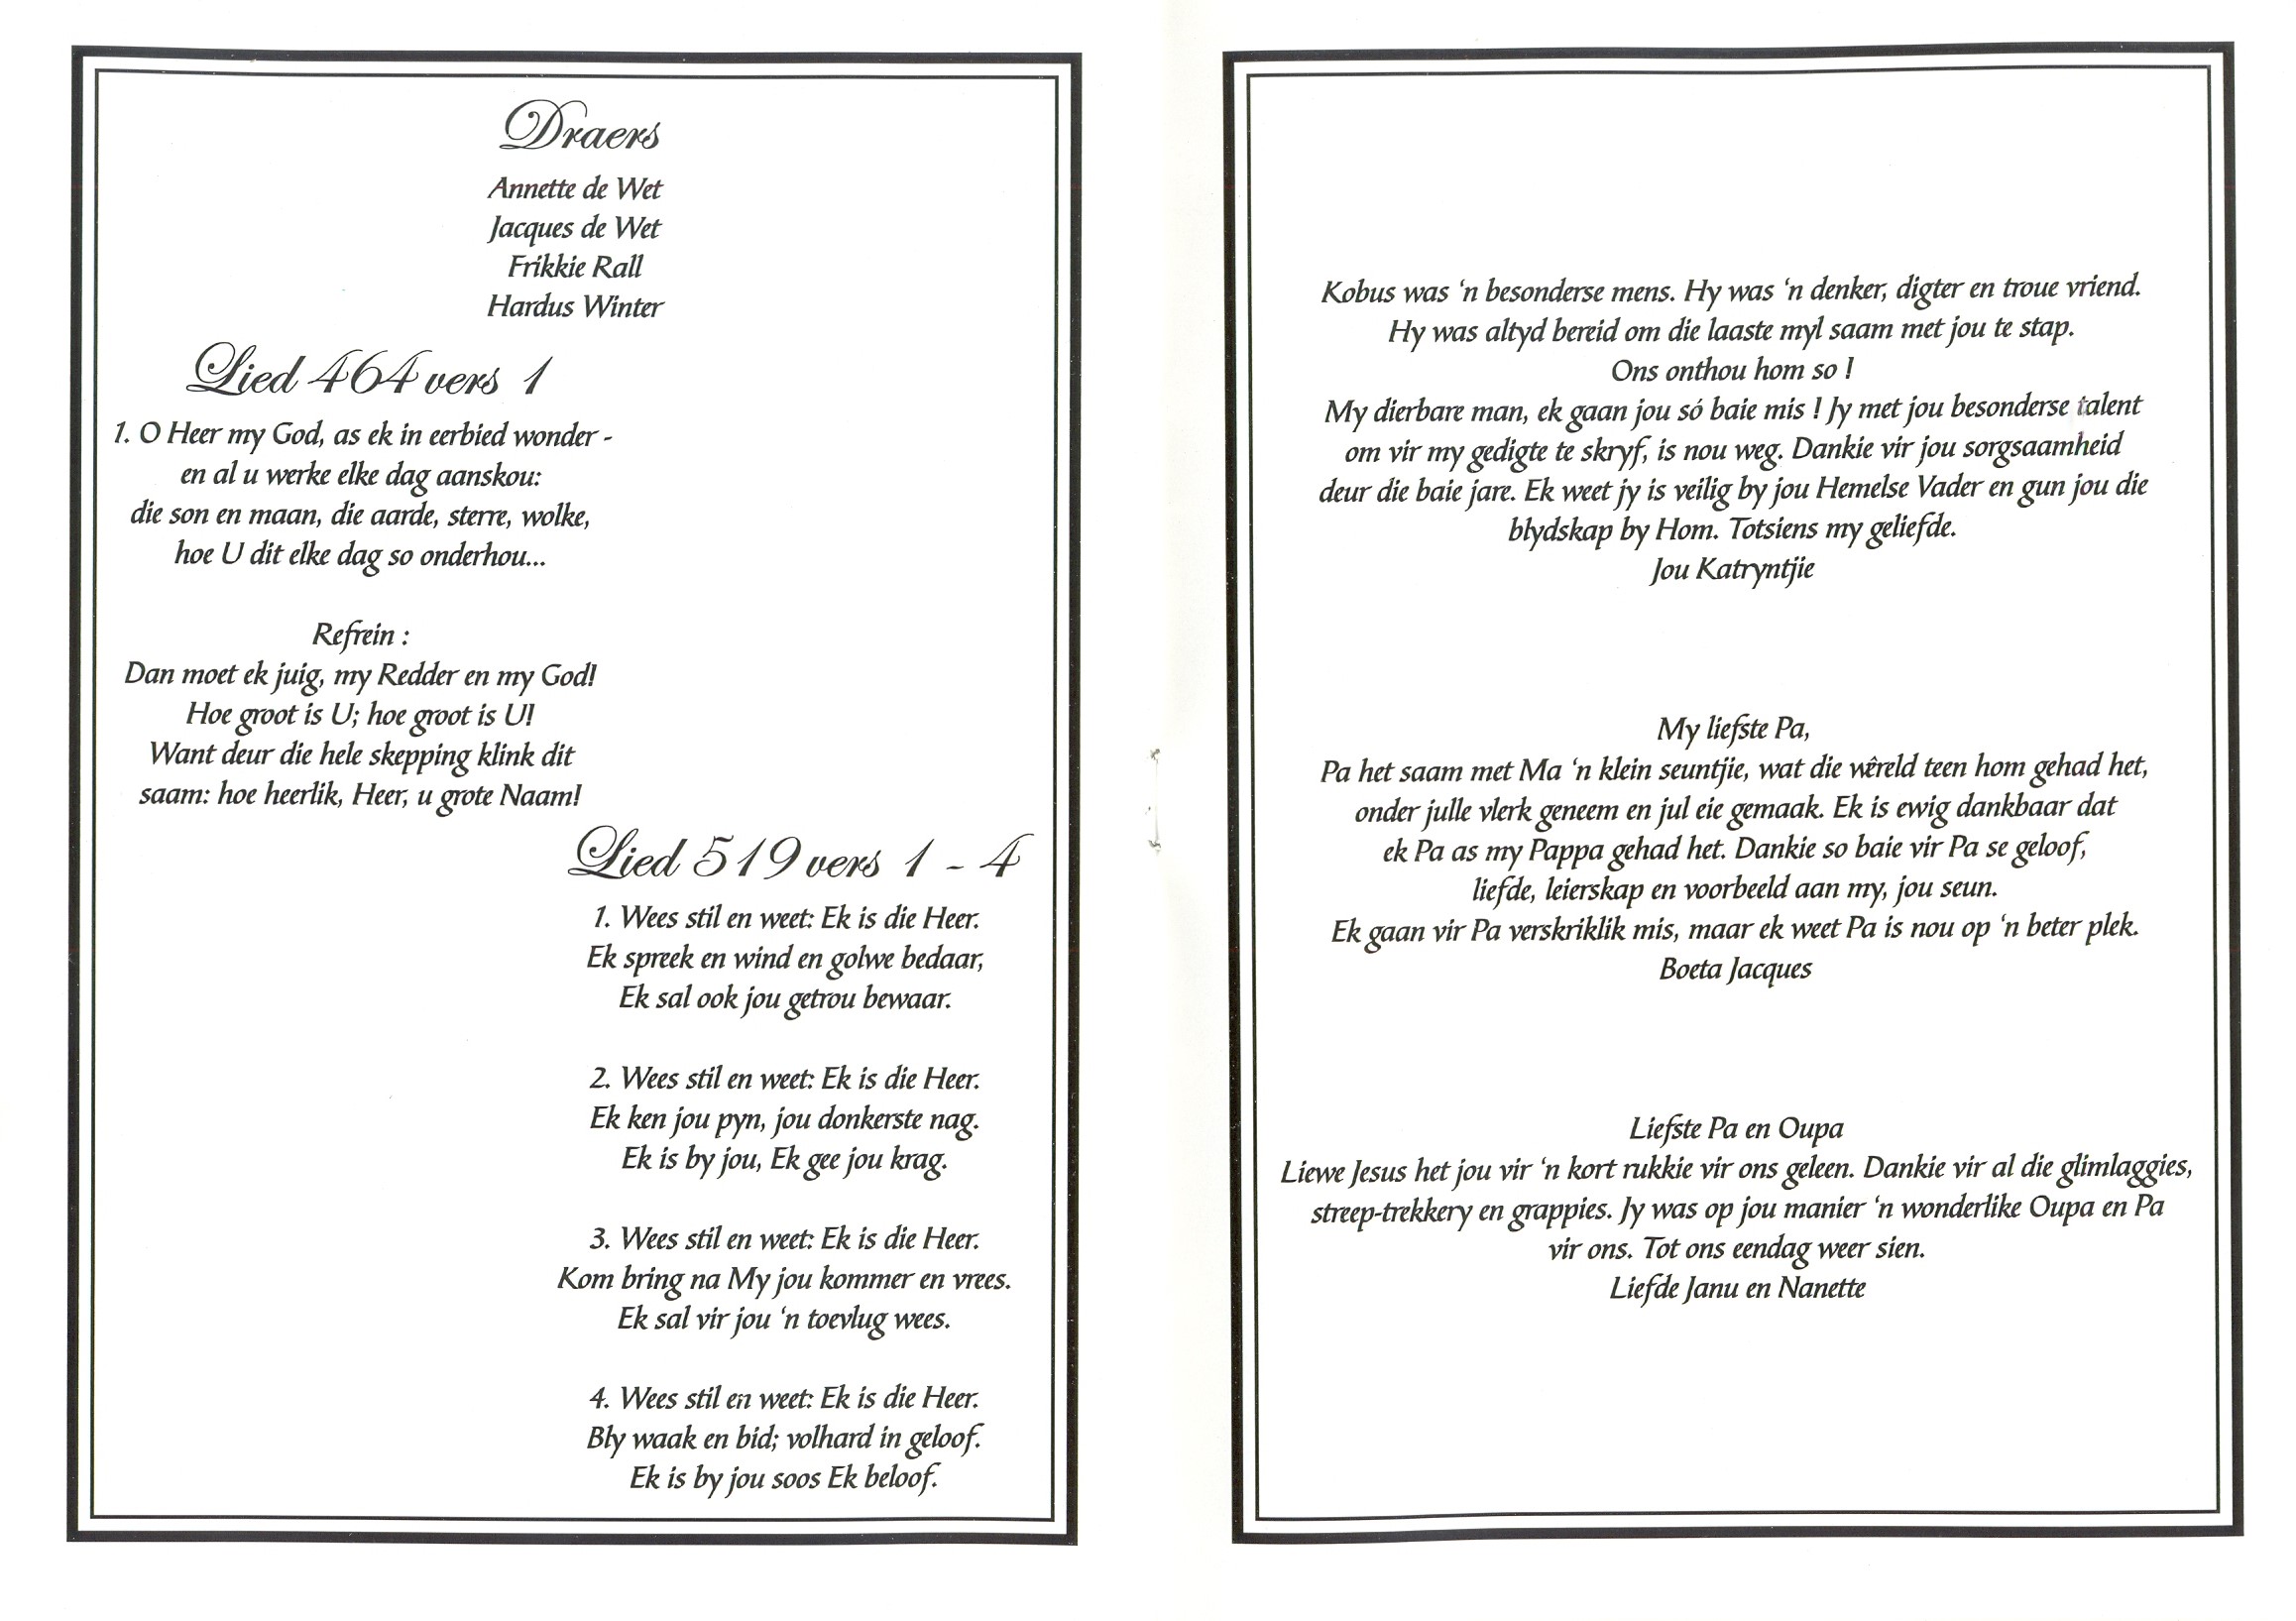 Draers
Annette de Wet
Jacques de Wet
Frikkie Rall
Hardus Winter
Lied 464 vers 1
1. O Heer my God, as ek in eerbied wonder -
en al u werke elke dag aanskou:
die son en maan, die aarde, sterre, wolke,
hoe U dit elke dag so onderhou...
Refrein :
Dan moet ek juig, my Redder en my God!
Hoe groot is U; hoe groot is U!
Want deur die hele skepping klink dit
saam: hoe heerlik, Heer, u grote Naam!
Lied 519 vers 1 - 4
1. Wees stil en weet: Ek is die Heer.
Ek spreek en wind en golwe bedaar,
Ek sal ook jou getrou bewaar.
2. Wees stil en weet: Ek is die Heer.
Ek ken jou pyn, jou donkerste nag.
Ek is by jou, Ek gee jou krag.
3. Wees stil en weet: Ek is die Heer.
Kom bring na My jou kommer en vrees.
Ek sal vir jou ‘n toevlug wees.
4. Wees stil en weet: Ek is die Heer.
Bly waak en bid; volhard in geloof.
Ek is by jou soos Ek beloof.
Kobus was ‘n besonderse mens. Hy was ‘n denker, digter en troue vriend.
Hy was altyd bereid om die laaste myl saam met jou te stap.
Ons onthou hom so !
My dierbare man, ek gaan jou só baie mis ! Jy met jou besonderse talent
om vir my gedigte te skryf, is nou weg. Dankie vir jou sorgsaamheid
deur die baie jare. Ek weet jy is veilig by jou Hemelse Vader en gun jou die
blydskap by Hom. Totsiens my geliefde.
Jou Katryntjie
My liefste Pa,
Pa het saam met Ma ‘n klein seuntjie, wat die wêreld teen hom gehad het,
onder julle vlerk geneem en jul eie gemaak. Ek is ewig dankbaar dat
ek Pa as my Pappa gehad het. Dankie so baie vir Pa se geloof,
liefde, leierskap en voorbeeld aan my, jou seun.
Ek gaan vir Pa verskriklik mis, maar ek weet Pa is nou op ‘n beter plek.
Boeta Jacques
Liefste Pa en Oupa
Liewe Jesus het jou vir ‘n kort rukkie vir ons geleen. Dankie vir al die glimlaggies,
streep-trekkery en grappies. Jy was op jou manier ‘n wonderlike Oupa en Pa
vir ons. Tot ons eendag weer sien.
Liefde Janu en Nanette